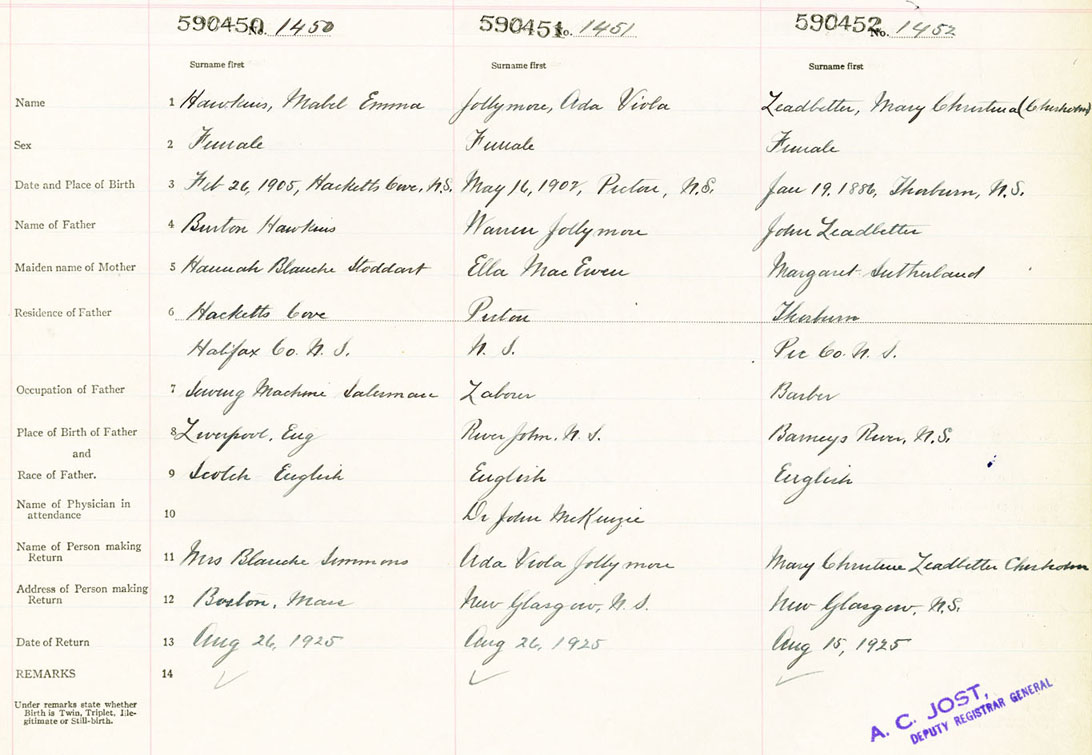 590450 No. 1450 590451 No. 1451 590452 No. 1452
Surname first Surname first Surname first
Name 1 Hawkins, Mabel Emma Jollymore, Ada Viola Leadbetter, Mary Christina (Chisholm)
Sex 2 Female Female Female
Date and Place of Birth 3 Feb 26, 1905, Hacketts Cove, N.S. May 16, 1907, Pictou, N.S. Jan 19, 1886, Thorburn, N.S.
Name of Father 4 Burton Hawkins Warren Jollymore John Leadbetter
Maiden name of Mother 5 Hannah Blanche Stoddart Ella MacEwen Margaret Sutherland
Residence of Father 6 Hacketts Cove Pictou Thorburn
Halifax Co. N. S. N. S. Pic Co. N. S.
Occupation of Father 7 Sewing Machine Salesman Labourer Barber
Place of Birth of Father 8 Liverpool, Eng River John, N. S. Barneys River, N.S.
and
Race of Father. 9 Scotch English English English
Name of Physician in
attendance 10 Dr John McKenzie
Name of Person making
Return 11 Mrs Blanche Simmons Ada Viola Jollymore Mary Christine Leadbetter Chisholm
Address of Person making
Return 12 Boston, Mass New Glasgow, N. S. New Glasgow, N.S.
Date of Return 13 Aug 26, 1925 Aug 26, 1925 Aug 15, 1925
REMARKS 14
Under remarks state whether
Birth is Twin, Triplet, Ille-
gitimate or Still-birth.
A. C. JOST,
DEPUTY REGISTRAR GENERAL